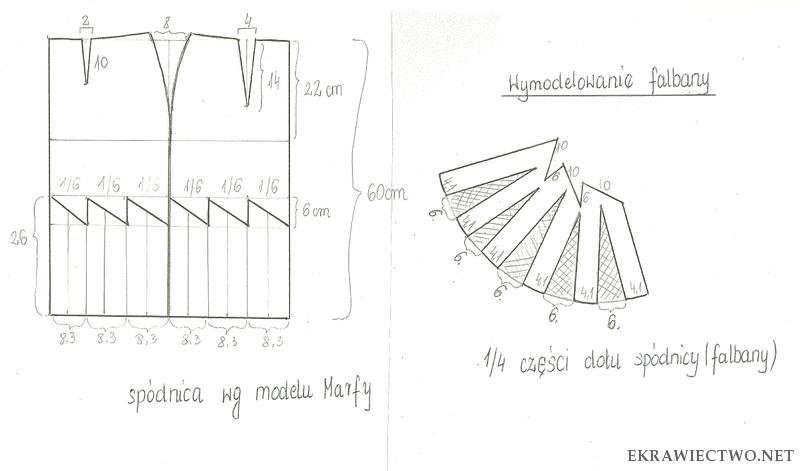 2 8 4
10
14
22 cm
1/6 1/6 1/6 1/6 1/6 1/6
60cm
6 cm
26
8.3 8.3 8,3 8.3 8.3 8,3
spódnica wg modelu Marfy
Wymodelowanie falbany
10
6 10
6
4,1
6.
4,1
6.
4,1
6.
4,1 4,1 4,1
6. 6.
1/4 części dołu spódnicy (falbany)
EKRAWIECTWO.NET